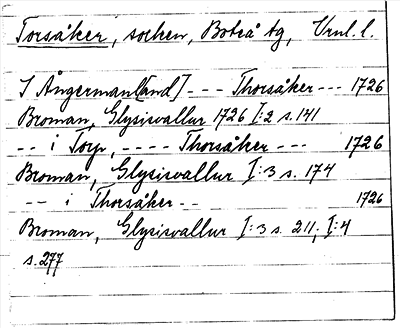 Torsåker, socken, Boteå tg, Vnl. l.
I Ångermanl[and] --- Thorsåker --- 1726
Broman, Glysisvallur 1726 I:2 s. 141
-- i Torp, ---- Thorsåker --- 1726
Broman, Glysisvallur I:3 s. 174
-- i Thorsåker -- 1726
Broman, Glysisvallur I:3 s. 211; I:4
s. 277